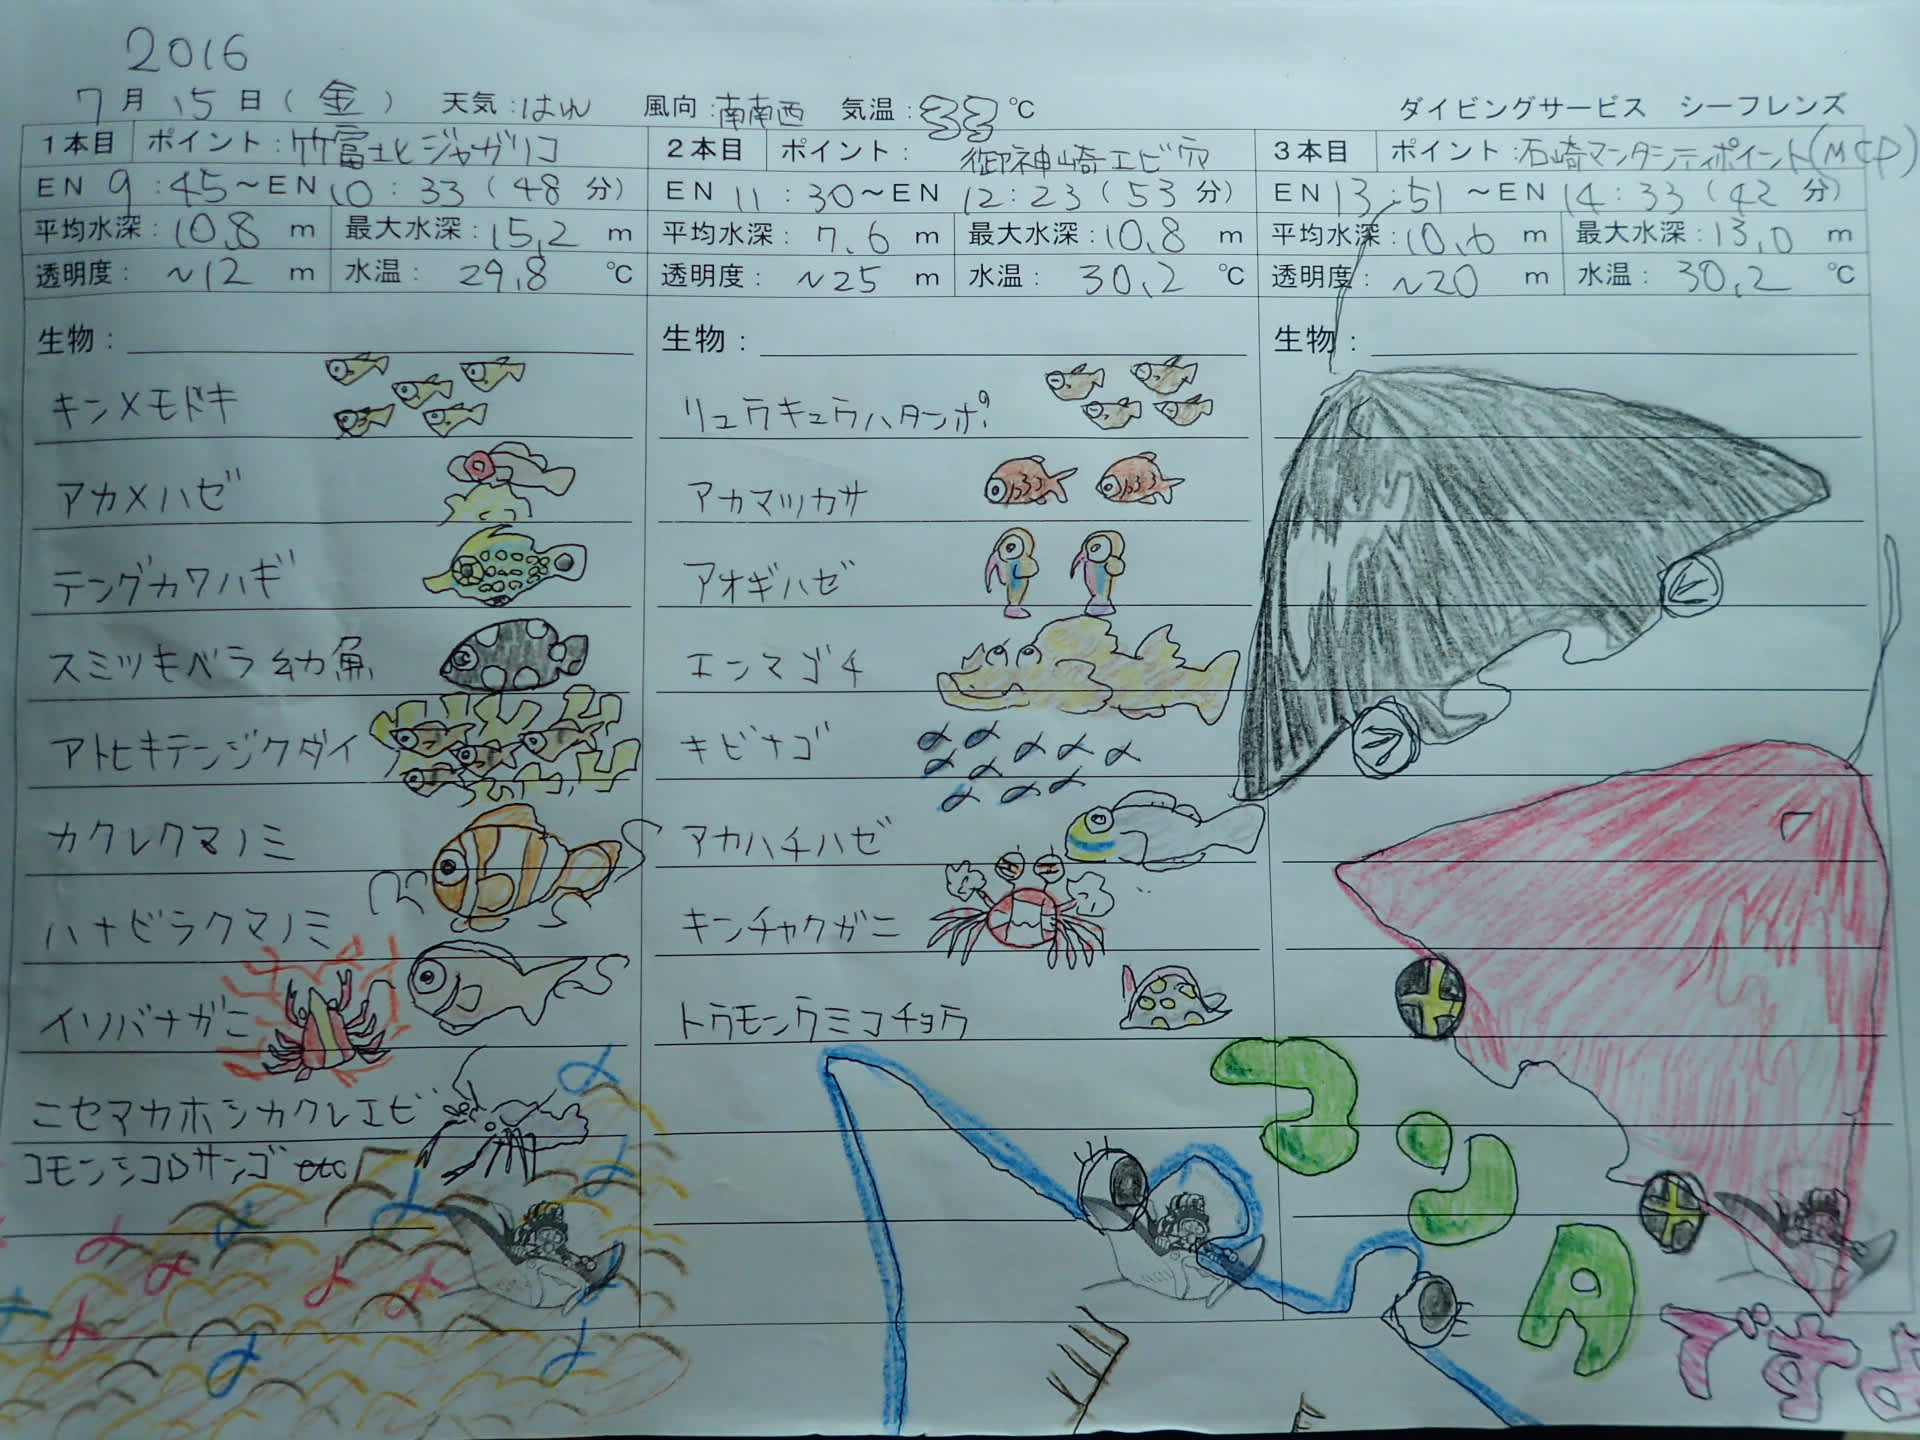 2016
7月15日(金) 天気:はれ 風向:南南西 気温:33℃ ダイビングサービス シーフレンズ
1本目 ポイント:竹富北ジャガリコ
EN 9:45～EN 10:33(48分)
平均水深:10.8m 最大水深:15.2m
透明度:~12m 水温:29.8℃
生物:
キンメモドキ
アカメハゼ
テングカワハギ
スミツキベラ幼魚
アトヒキテンジクダイ
カクレクマノミ
ハナビラクマノミ
イソバナガニ
ニセマカホシカクレエビ
コモンシコロサンゴ etc
2本目 ポイント:御神崎エビ穴
EN 11:30～EN 12:23(53分)
平均水深:7.6m 最大水深:10.8m
透明度:~25m 水温:30.2℃
生物:
リュウキュウハタンポ
アカマツカサ
アオギハゼ
エンマゴチ
キビナゴ
アカハチハゼ
キンチャクガニ
トラモンウミコチョウ
3本目 ポイント:石崎マンタシティポイント(MCP)
EN 13:51～EN 14:33(42分)
平均水深:10.6m 最大水深:13.0m
透明度:~20m 水温:30.2℃
生物:
コンA
です